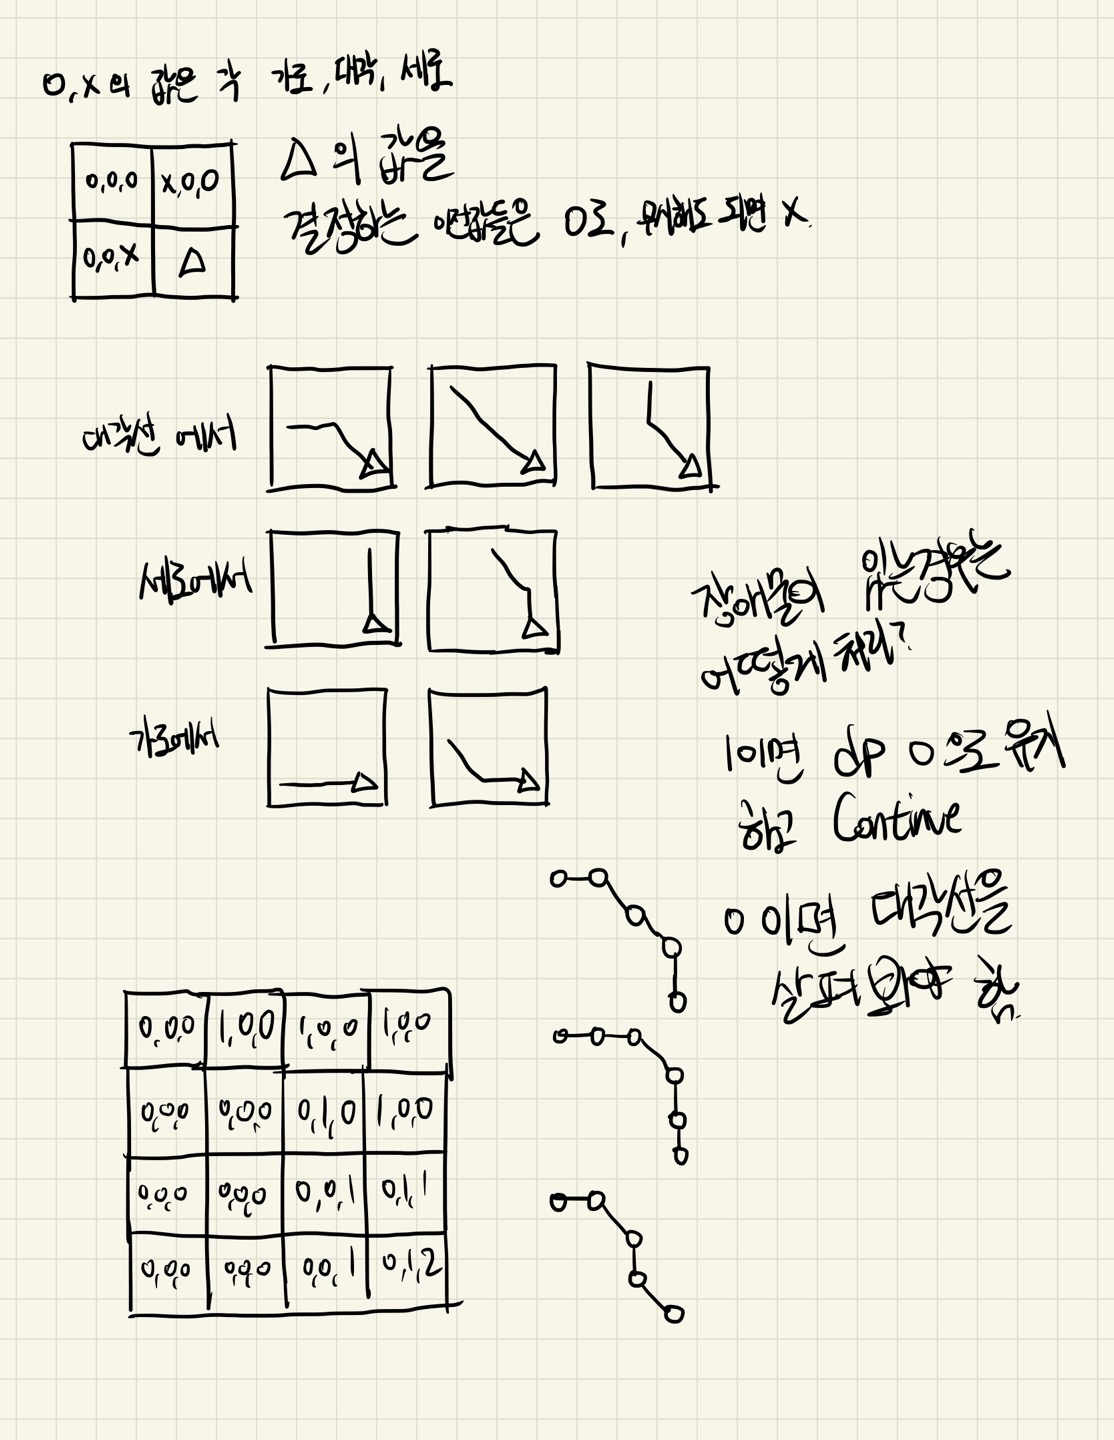 O,X의 값은 각 가로,대각,세로
O,O,O X,O,O
O,O,X △
△의 값을
결정하는 이전값들은 O로, 무시해도 되면 X.
대각선에서
세로에서
가로에서
장애물이 있는경우는
어떻게 처리?
1이면 dp 0으로 유지
하고 Continue
0이면 대각선을
살펴봐야 함.
0,0,0 1,0,0 1,0,0 1,0,0
0,0,0 0,0,0 0,1,0 1,0,0
0,0,0 0,0,0 0,0,1 0,1,1
0,0,0 0,0,0 0,0,1 0,1,2